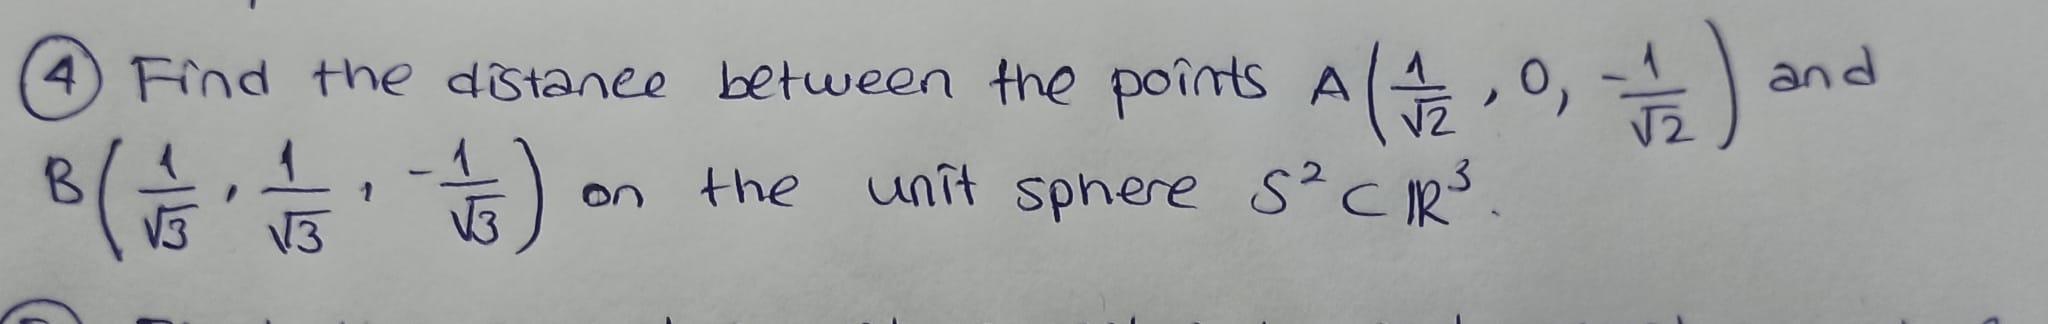 ④ Find the distance between the points A(1/√2, 0, -1/√2) and
B(1/√3, 1/√3, -1/√3) on the unit sphere S² ⊂ ℝ³.